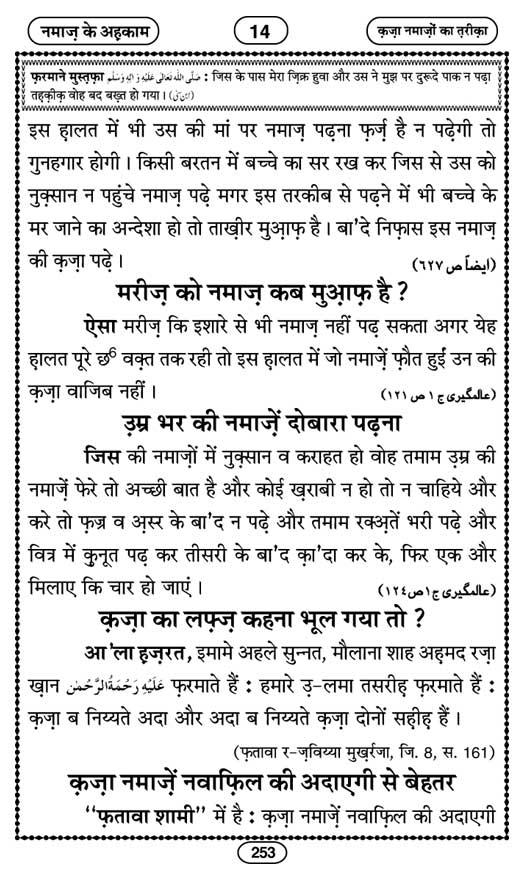 नमाज़ के अह़काम
14
क़ज़ा नमाज़ों का त़रीक़ा
फ़रमाने मुस्त़फ़ा صَلَّى اللّٰهُ تَعَالٰى عَلَيْهِ وَاٰلِهٖ وَسَلَّم : जिस के पास मेरा ज़िक्र हुवा और उस ने मुझ पर दुरूदे पाक न पढ़ा
तह़क़ीक़ वोह बद बख़्त हो गया।
इस ह़ालत में भी उस की मां पर नमाज़ पढ़ना फ़र्ज़ है न पढ़ेगी तो
गुनहगार होगी। किसी बरतन में बच्चे का सर रख कर जिस से उस को
नुक़्सान न पहुंचे नमाज़ पढ़े मगर इस तरकीब से पढ़ने में भी बच्चे के
मर जाने का अन्देशा हो तो ताख़ीर मुआ़फ़ है। बा'दे निफ़ास इस नमाज़
की क़ज़ा पढ़े। (ایضاً ص ٦٢٧)
मरीज़ को नमाज़ कब मुआ़फ़ है ?
ऐसा मरीज़ कि इशारे से भी नमाज़ नहीं पढ़ सकता अगर येह
ह़ालत पूरे छ⁶ वक़्त तक रही तो इस ह़ालत में जो नमाज़ें फ़ौत हुईं उन की
क़ज़ा वाजिब नहीं। (عالمگیری ج ١ ص ١٢١)
उ़म्र भर की नमाज़ें दोबारा पढ़ना
जिस की नमाज़ों में नुक़्सान व कराहत हो वोह तमाम उ़म्र की
नमाज़ें फेरे तो अच्छी बात है और कोई ख़राबी न हो तो न चाहिये और
करे तो फ़ज्र व अ़स्र के बा'द न पढ़े और तमाम रक्अ़तें भरी पढ़े और
वित्र में क़ुनूत पढ़ कर तीसरी के बा'द क़ा'दा कर के, फिर एक और
मिलाए कि चार हो जाएं। (عالمگیری ج١ص١٢٤)
क़ज़ा का लफ़्ज़ कहना भूल गया तो ?
आ'ला ह़ज़रत, इमामे अहले सुन्नत, मौलाना शाह अह़मद रज़ा
ख़ान عَلَيْهِ رَحْمَةُ الرَّحْمٰن फ़रमाते हैं : हमारे उ़-लमा तसरीह़ फ़रमाते हैं :
क़ज़ा ब निय्यते अदा और अदा ब निय्यते क़ज़ा दोनों सह़ीह़ हैं।
(फ़तावा र-ज़विय्या मुख़र्रजा, जि. 8, स. 161)
क़ज़ा नमाज़ें नवाफ़िल की अदाएगी से बेहतर
“फ़तावा शामी” में है : क़ज़ा नमाज़ें नवाफ़िल की अदाएगी
253